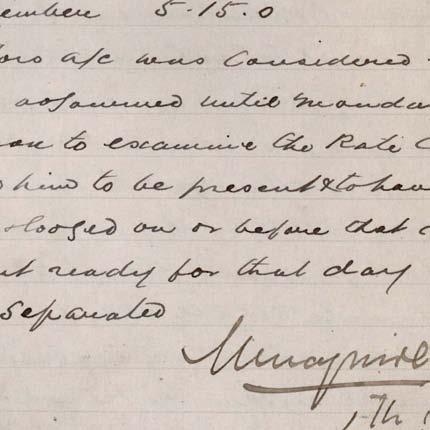 ember 5.15.0
ors a/c was Considered
adjourned until Monda
to examine the Rate C
him to be present & to hav
lodged on or before that
ready for that day
separated
7th